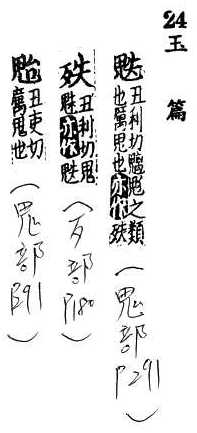 24 玉篇
丑利切魑魅之類
也厲鬼也亦作
(鬼部 P291)
丑利切鬼
魅亦作
(歹部 P180)
丑吏切
厲鬼也
(鬼部 P291)